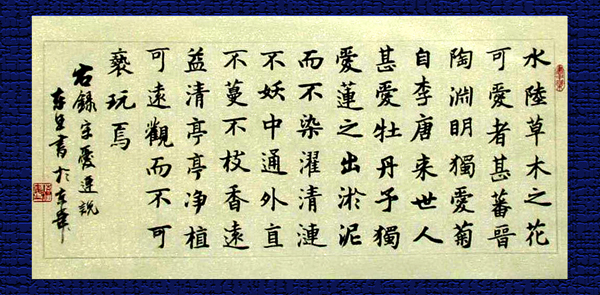 水陸草木之花
可愛者甚蕃晉
陶淵明獨愛菊
自李唐来世人
甚愛牡丹予獨
愛蓮之出淤泥
而不染濯清漣
不妖中通外直
不蔓不枝香遠
益清亭亭净植
可遠觀而不可
褻玩焉
右錄宋愛蓮說
書於京華